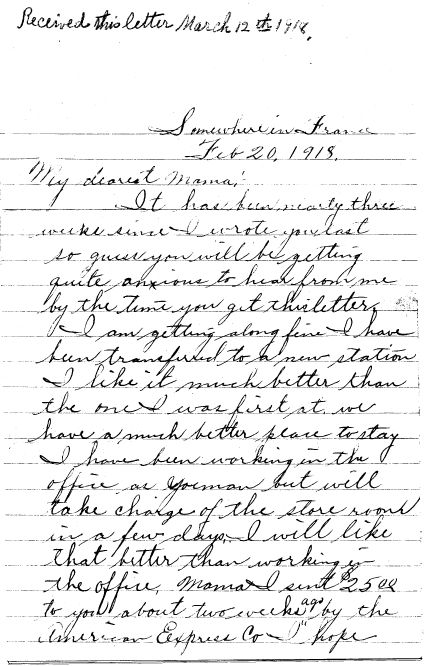 Received this letter March 12th 1918.
Somewhere in France
Feb 20, 1918.
My dearest Mama;
It has been nearly three
weeks since I wrote you last
so guess you will be getting
quite anxious to hear from me
by the time you get this letter.
I am getting along fine I have
been transferred to a new station
I like it much better than
the one I was first at we
have a much better place to stay
I have been working in the
office as yoeman but will
take charge of the store room
in a few days. I will like
that better than working in
the office. Mama I sent $25.00
to you about two weeks ago by the
American Express Co I hope